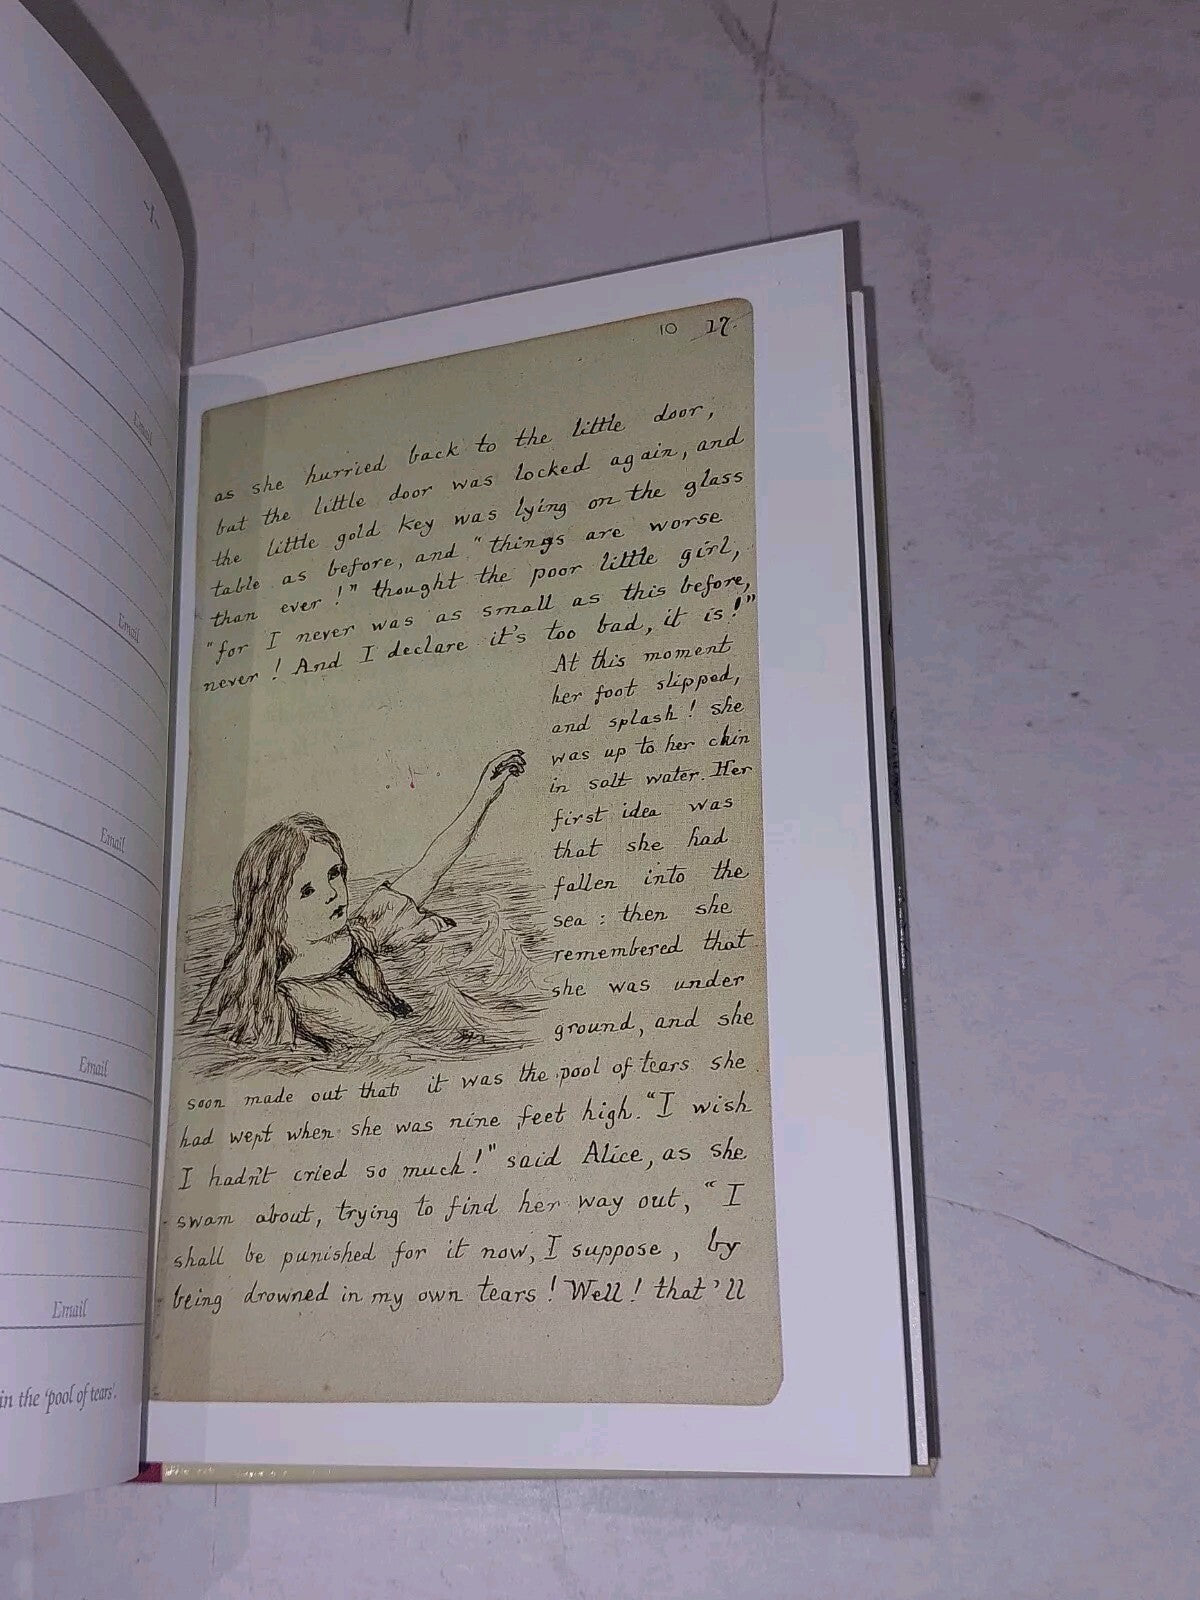 ~I~
Email
Email
Email
Email
Email
in the 'pool of tears'.
10 17.
as she hurried back to the little door,
but the little door was locked again, and
the little gold key was lying on the glass
table as before, and "things are worse
than ever!" thought the poor little girl,
"for I never was as small as this before,
never! And I declare it's too bad, it is!"
At this moment
her foot slipped,
and splash! she
was up to her chin
in salt water. Her
first idea was
that she had
fallen into the
sea: then she
remembered that
she was under
ground, and she
soon made out that it was the pool of tears she
had wept when she was nine feet high. "I wish
I hadn't cried so much!" said Alice, as she
swam about, trying to find her way out, "I
shall be punished for it now, I suppose, by
being drowned in my own tears! Well! that'll